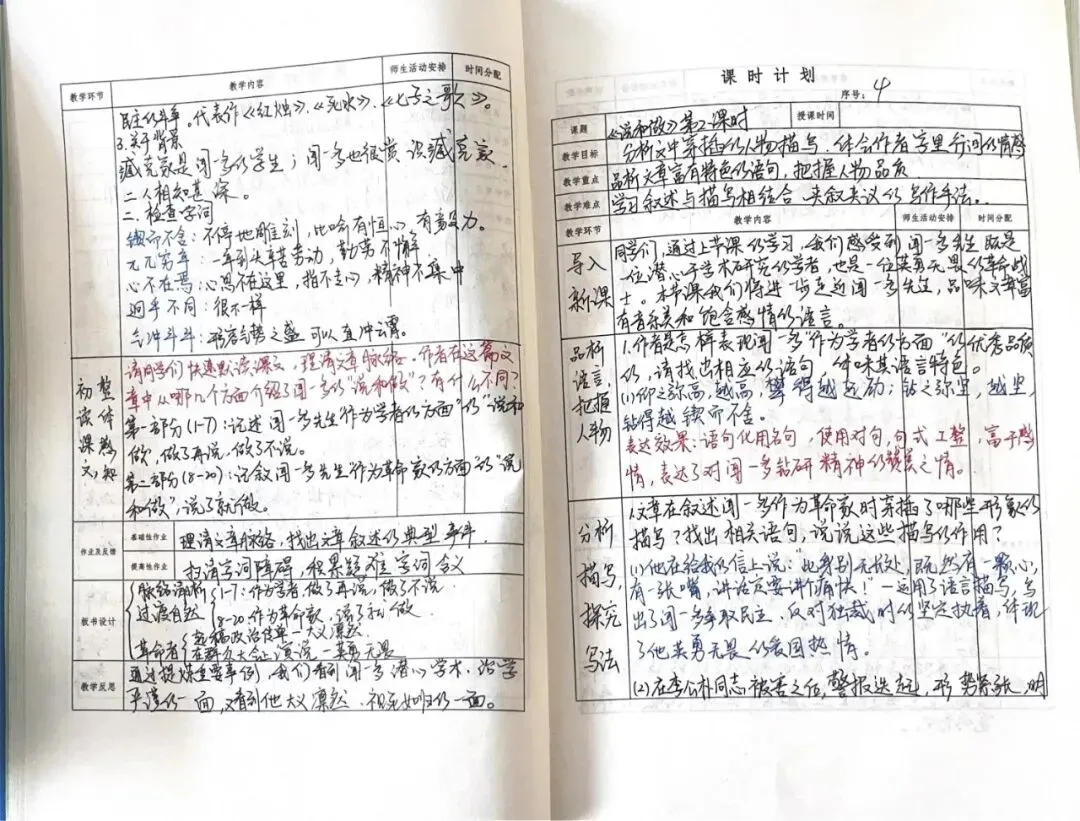 教学环节 教学内容 师生活动安排 时间分配
民主的斗争。代表作《红烛》、《死水》、《七子之歌》。
3.关于背景
臧克家是闻一多的学生；闻一多也很赏识臧克家、
二人相知甚深。
二、检查字词
锲而不舍：不停地雕刻，比喻有恒心，有毅力。
兀兀穷年：一年到头辛苦劳动，勤劳不懈
心不在焉：心思不在这里，指不专心，精神不集中
迥乎不同：很不一样
气冲斗牛：形容气势之盛可以直冲云霄。
初读课文，
整体感知
请同学们快速默读课文，理清文章脉络。作者在这篇文
章中从哪几个方面介绍了闻一多的"说和做"？有什么不同？
第一部分(1-7)：记述闻一多先生"作为学者的方面"的"说和
做"，做了再说，做了不说。
第二部分(8-20)：记叙闻一多先生"作为革命家的方面"的"说
和做"，说了就做。
作业及反馈
基础性作业 理清文章脉络，找出文章叙述的典型事件
提高性作业 扫清字词障碍，积累疑难字词含义
板书设计
脉络清晰 1-7：作为学者，做了再说，做了不说
过渡自然 8-20作为革命家，说了就做
革命者 起稿政治传单—大义凛然
在群众大会演说—英勇无畏
教学反思
通过提炼重要事例，我们看到闻一多潜心学术、治学
严谨的一面，又看到他大义凛然、视死如归的一面。
课时计划
序号：4
课题 《说和做》第2课时 授课时间
教学目标 分析文中穿插的人物描写，体会作者字里行间的情感
教学重点 品析文章富有特色的语句，把握人物品质
教学难点 学习叙述与描写相结合、夹叙夹议的写作手法。
教学环节 教学内容 师生活动安排 时间分配
导入
新课
同学们，通过上节课的学习，我们感受到闻一多先生既是
一位潜心于学术研究的学者，也是一位英勇无畏的革命战
士。本节课我们将进一步走近闻一多先生，品味文章富
有音乐美和饱含感情的语言。
品析
语言，
把握
人物
1.作者是怎样表现闻一多"作为学者的方面"的优秀品质
的，请找出相应的语句，体味其语言特色。
(1)仰之弥高，越高，攀得越起劲；钻之弥坚，越坚，
钻得越锲而不舍。
表达效果：语句化用名句，使用对句，句式工整，富于感
情，表达了对闻一多钻研精神的赞美之情。
分析
描写，
探究
写法
1.文章在叙述闻一多作为革命家时穿插了哪些形象的
描写？找出相关语句，说说这些描写的作用？
(1)他在给我的信上说："此身别无长处，既然有一颗心，
有一张嘴，讲话定要讲个痛快！"—运用了语言描写，写
出了闻一多争取民主、反对独裁时的坚定执着，体现
了他英勇无畏的爱国热情。
(2)在李公朴同志被害之后，警报迭起，形势紧张，明